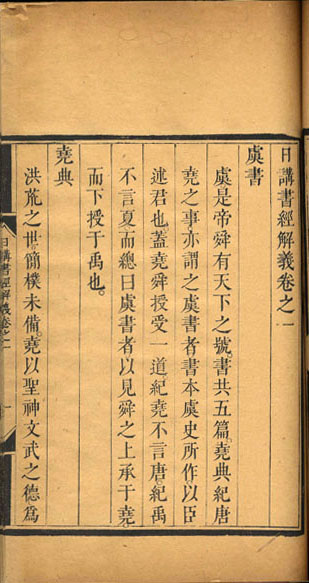 日講書經解義卷之一
虞書
虞是帝舜有天下之號。書共五篇。堯典紀唐
堯之事亦謂之虞書者書本虞史所作以臣
述君也。蓋堯舜授受一道紀堯不言唐紀禹
不言夏而總曰虞書者以見舜之上承于堯。
而下授于禹也。
堯典
洪荒之世簡樸未備。堯以聖神文武之德爲
日講書經解義卷之一
一